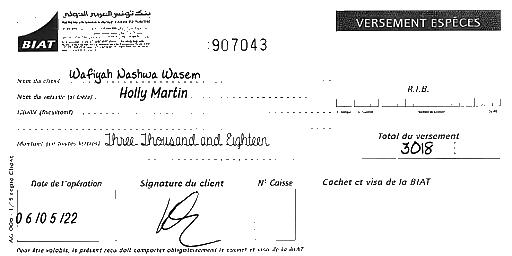 بنك تونس العربي الدولي
BIAT
:907043
VERSEMENT ESPÈCES
Nom du client Wafiyah Nashwa Wasem
Nom du remettant (si tiers) Holly Martin
R.I.B.
Libellé (facultatif)
Montant (en toutes lettres) Three Thousand and Eighteen
Total du versement
3018
Date de l'opération
Signature du client
N° Caisse
Cachet et visa de la BIAT
06/05/22
Pour être valable, le présent reçu doit comporter obligatoirement le cachet et visa de la BIAT